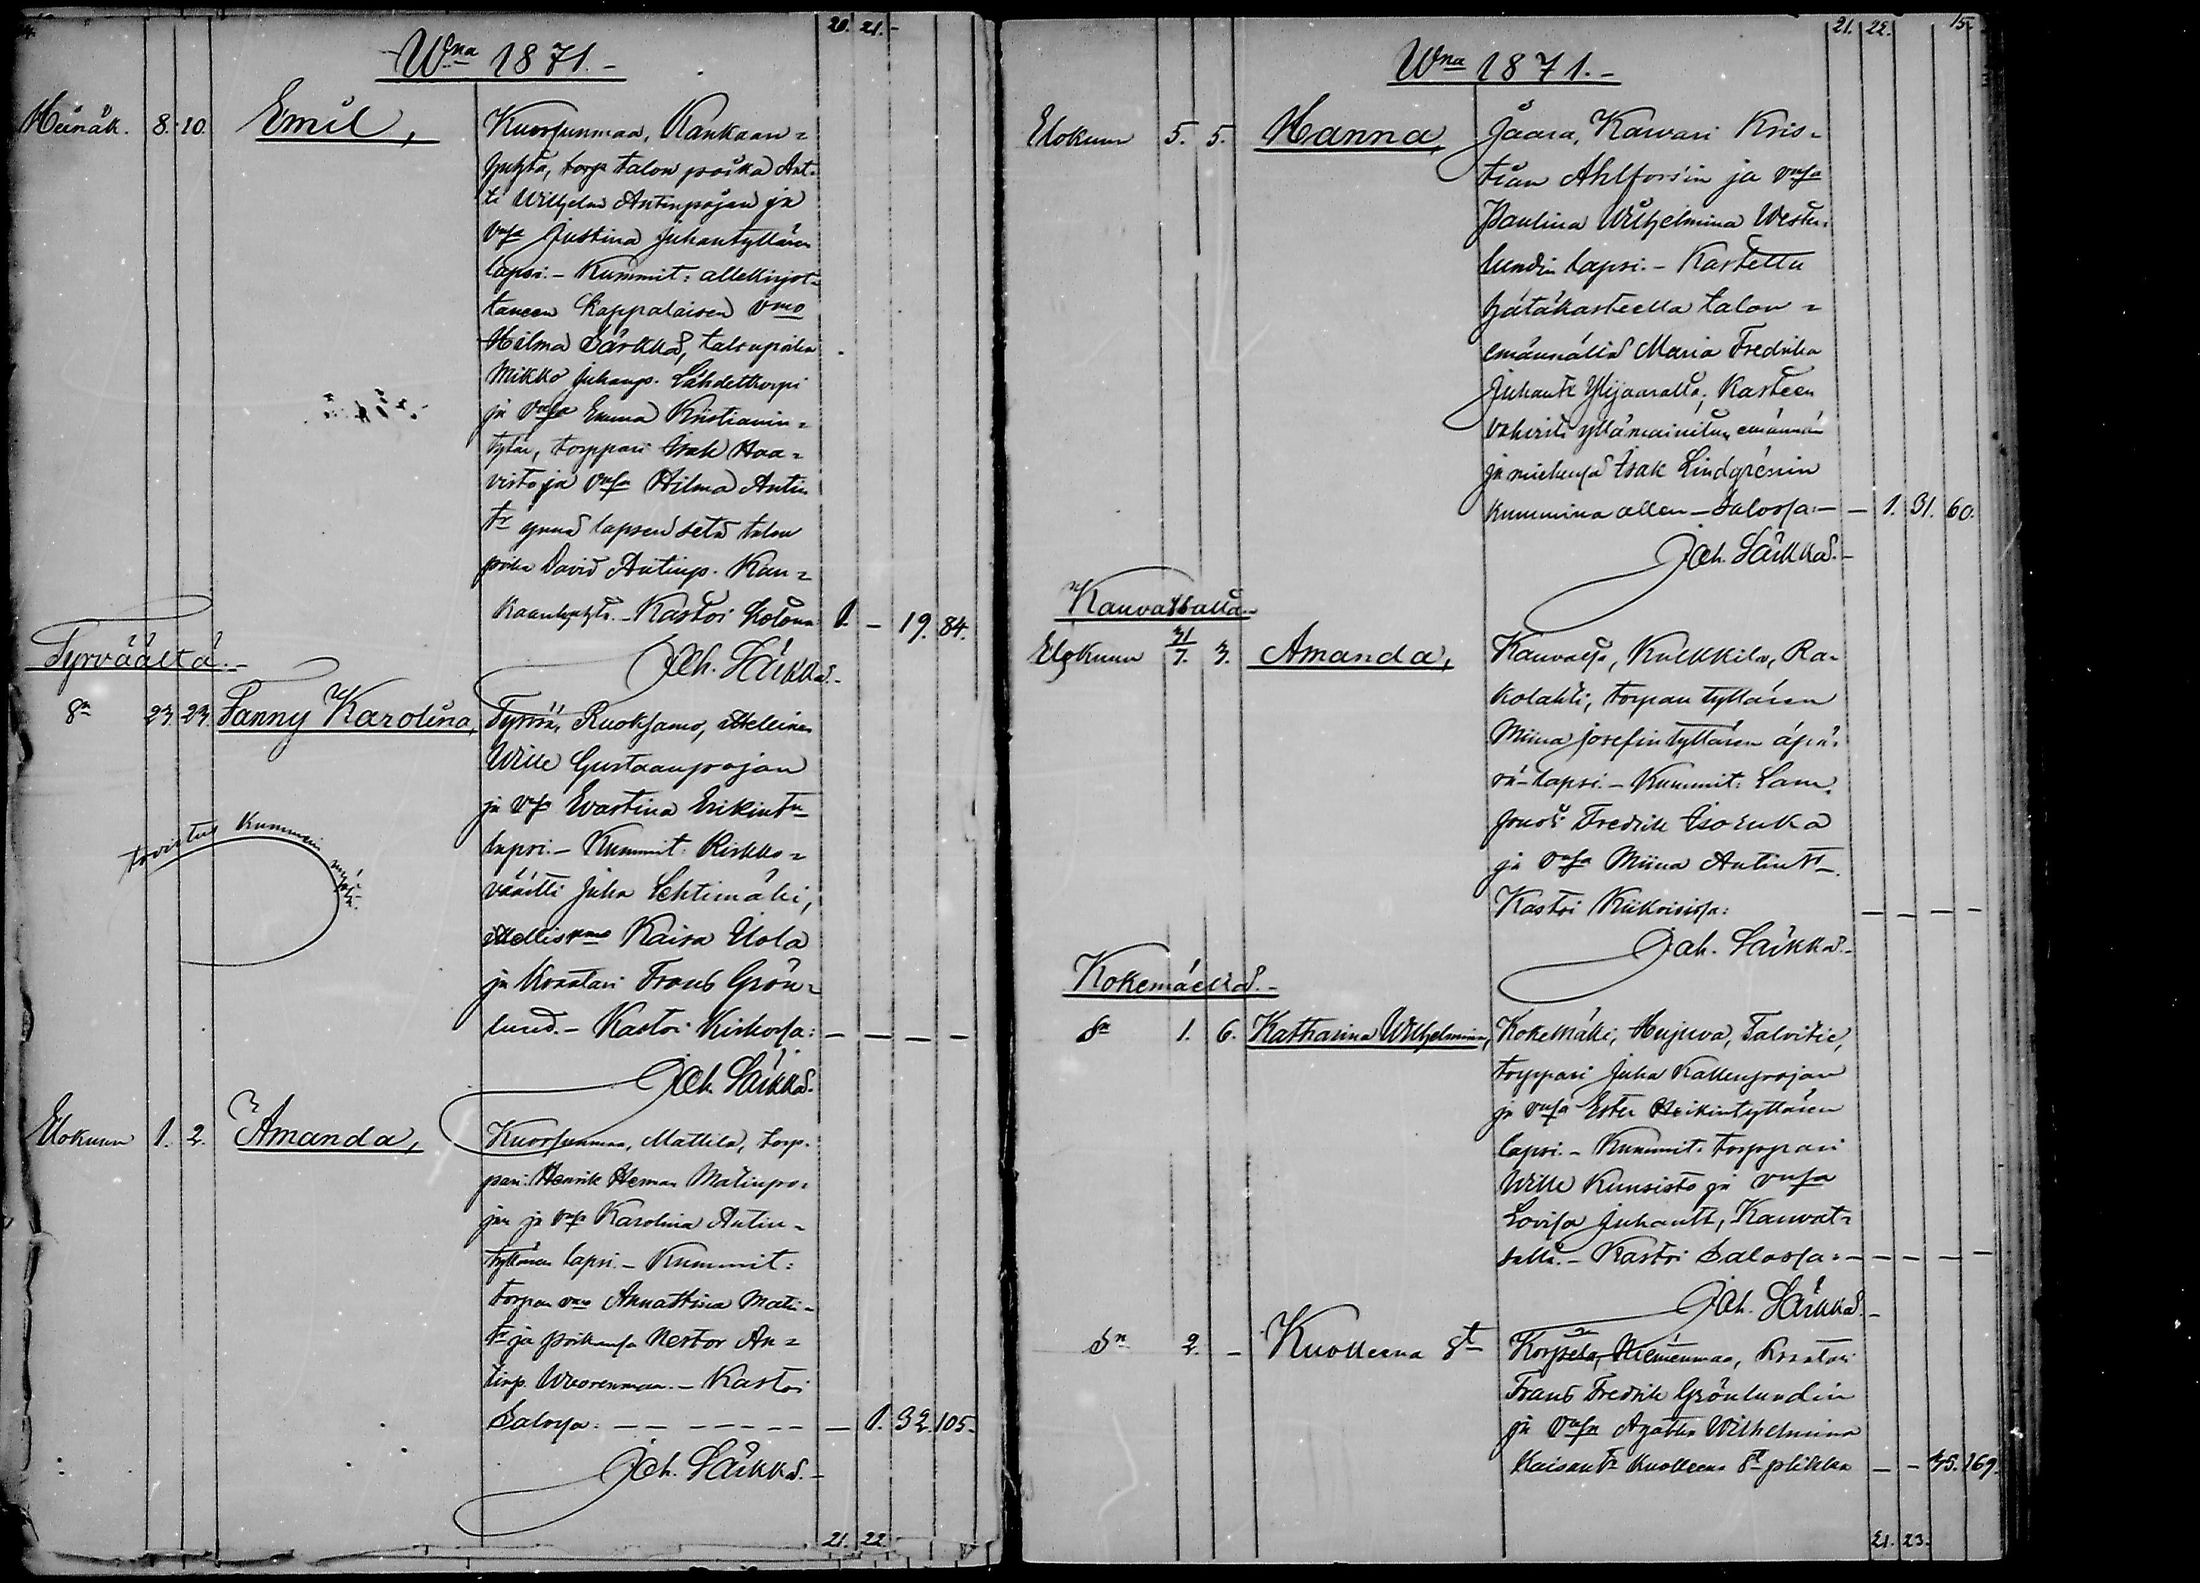 20. 21.
Wna 1871.-
Heinäk. 8. 10. Emil, Kuorsunmaa, Kankaan=
torp talon poika Ant=
ti Wilhelm Antinpojan ja
Vnsa Justina Juhantyttären
lapsi.- Kummit: allekirjot=
taneen Kappalaisen vmo
Hilma Särkkä, talonpoika
Mikko Juhanp. Lähdekorpi
ja Vnsa Emma Kristianin=
tytär, torppari Isak Haa=
visto ja Vnsa Hilma Antin
tr ynnä lapsen setä talon
poika David Antinp. Kan=
Kastoi kotona 1. - 19. 84.
Joh. Särkkä.-
Tyrväältä.-
Sn 23. 23. Fanny Karolina, Tyrvää, Ruoksamo, itsellinen
Wille Gustaanpojan
ja Vnsa Evastina Erikintr
lapsi.- Kummit: Kirkko=
väärtti Juha Lehtimäki,
itsellisvmo Kaisa Uola
ja Kraatari Frans Grön=
lund.- Kastoi Kirkossa: - - - -
todistus Kummin
Joh. Särkkä.
Elokuun 1. 2. Amanda, Kuorsunmaa, Mattila, torp=
pari Henrik Herman Matinpo=
jan ja Vnsa Karolina Antin=
tyttären lapsi.- Kummit:
torpan vmo Annastina Matin=
tr ja poikansa Nestor An=
tinp. Wuorenmaa.- Kastoi
Salossa: - - - - - - - 1. 32. 105.
Joh. Särkkä.-
21. 22.
21. 22. 15.
Wna 1871.-
Elokuun 5. 5. Hanna, Jaara, Karvari Kris=
tian Ahlforsin ja vnsa
Paulina Wilhelmina Wester=
lundin lapsi.- Kastettu
hätäkasteella talon=
emännältä Maria Fredrika
Juhantr Ylijaaralta; Kasteen
vahvisti yllämainitun emännän
ja miehensä Isak Lindgrénin
kummina ollen - Salossa:- - 1. 31. 60.
Joh. Särkkä.-
Kauvatsalla.-
Elokuun 31/7. 3. Amanda, Kauvatsa, Kulkkila, Ra=
kolahti, torpan tyttären
Miina Josefintyttären äpä=
rä-lapsi.- Kummit: Lam=
Fredrik Isoruka
ja Vnsa Miina Antintr.
Kastoi Kiikoisissa: - - - -
Joh. Särkkä.-
Kokemäellä.-
Sn 1. 6. Katharina Wilhelmina, Kokemäki, Kujuva, Talvitie,
torppari Juha Kallenpojan
ja vnsa Ester Heikintyttären
lapsi.- Kummit: torppari
Wille Kunsisto ja vnsa
Lovisa Juhantr, Kauvat=
salla.- Kastoi Salossa: - - - -
Joh. Särkkä.-
Sn 2. - Kuolleena St Korpela, Niemenmaa, Kraatari
Frans Fredrik Grönlundin
ja Vnsa Agatha Wilhelmina
Kaisantr kuolleena St plikka - - 35. 169.
21. 23.